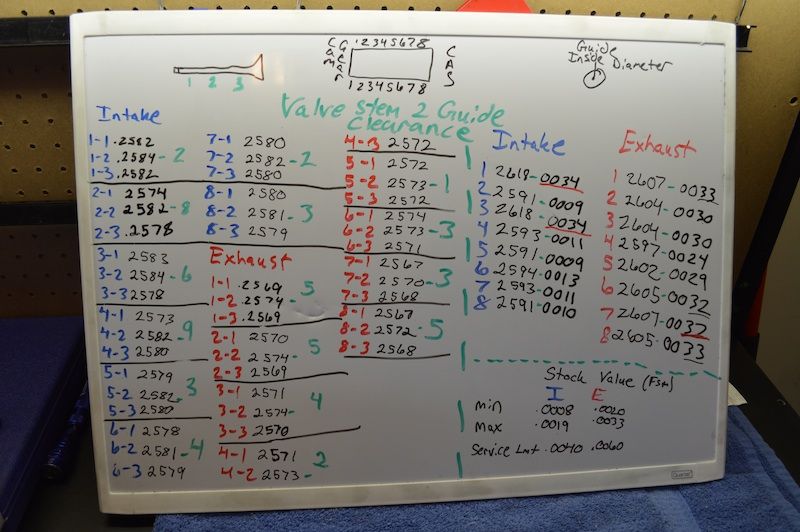 1 2 3
Cams
Gear
1 2 3 4 5 6 7 8
1 2 3 4 5 6 7 8
CAS
Guide
Inside Diameter
Valve Stem 2 Guide
Clearance
Intake
1-1 .2582
1-2 .2584 - 2
1-3 .2582
2-1 2574
2-2 2582 - 8
2-3 .2578
3-1 2583
3-2 2584 - 6
3-3 2578
4-1 2573
4-2 2582 - 9
4-3 2580
5-1 2579
5-2 2582 - 3
5-3 2580
6-1 2578
6-2 2581 - 4
6-3 2579
7-1 2580
7-2 2582 - 2
7-3 2580
8-1 2580
8-2 2581 - 3
8-3 2579
Exhaust
1-1 .2569 5
1-2 .2574 -
1-3 .2569
2-1 2570
2-2 2574 - 5
2-3 2569
3-1 2571
3-2 2574 - 4
3-3 2570
4-1 2571
4-2 2573 - 2
4-3 2572
5-1 2572
5-2 2573 - 1
5-3 2572
6-1 2574
6-2 2573 - 3
6-3 2571
7-1 2567
7-2 2570 - 3
7-3 2568
8-1 2567
8-2 2572 - 5
8-3 2568
Intake
1 2618 - 0034
2 2591 - 0009
3 2618 - 0034
4 2593 - 0011
5 2591 - 0009
6 2594 - 0013
7 2593 - 0011
8 2591 - 0010
Exhaust
1 2607 - 0033
2 2604 - 0030
3 2604 - 0030
4 2597 - 0024
5 2602 - 0029
6 2605 - 0032
7 2607 - 0037
8 2605 - 0033
Stock Value (FSM)
I E
min .0008 .0020
max .0019 .0033
Service Lmt .0040 .0060
Quartet